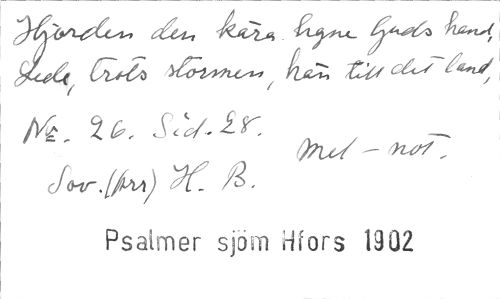 Hjorden den kära hgne Guds hand,
Lede, trots stormen, hän till det land,
No. 26. Sid. 28.
Mel-not.
Sov. (arr) H. B.
Psalmer sjöm Hfors 1902